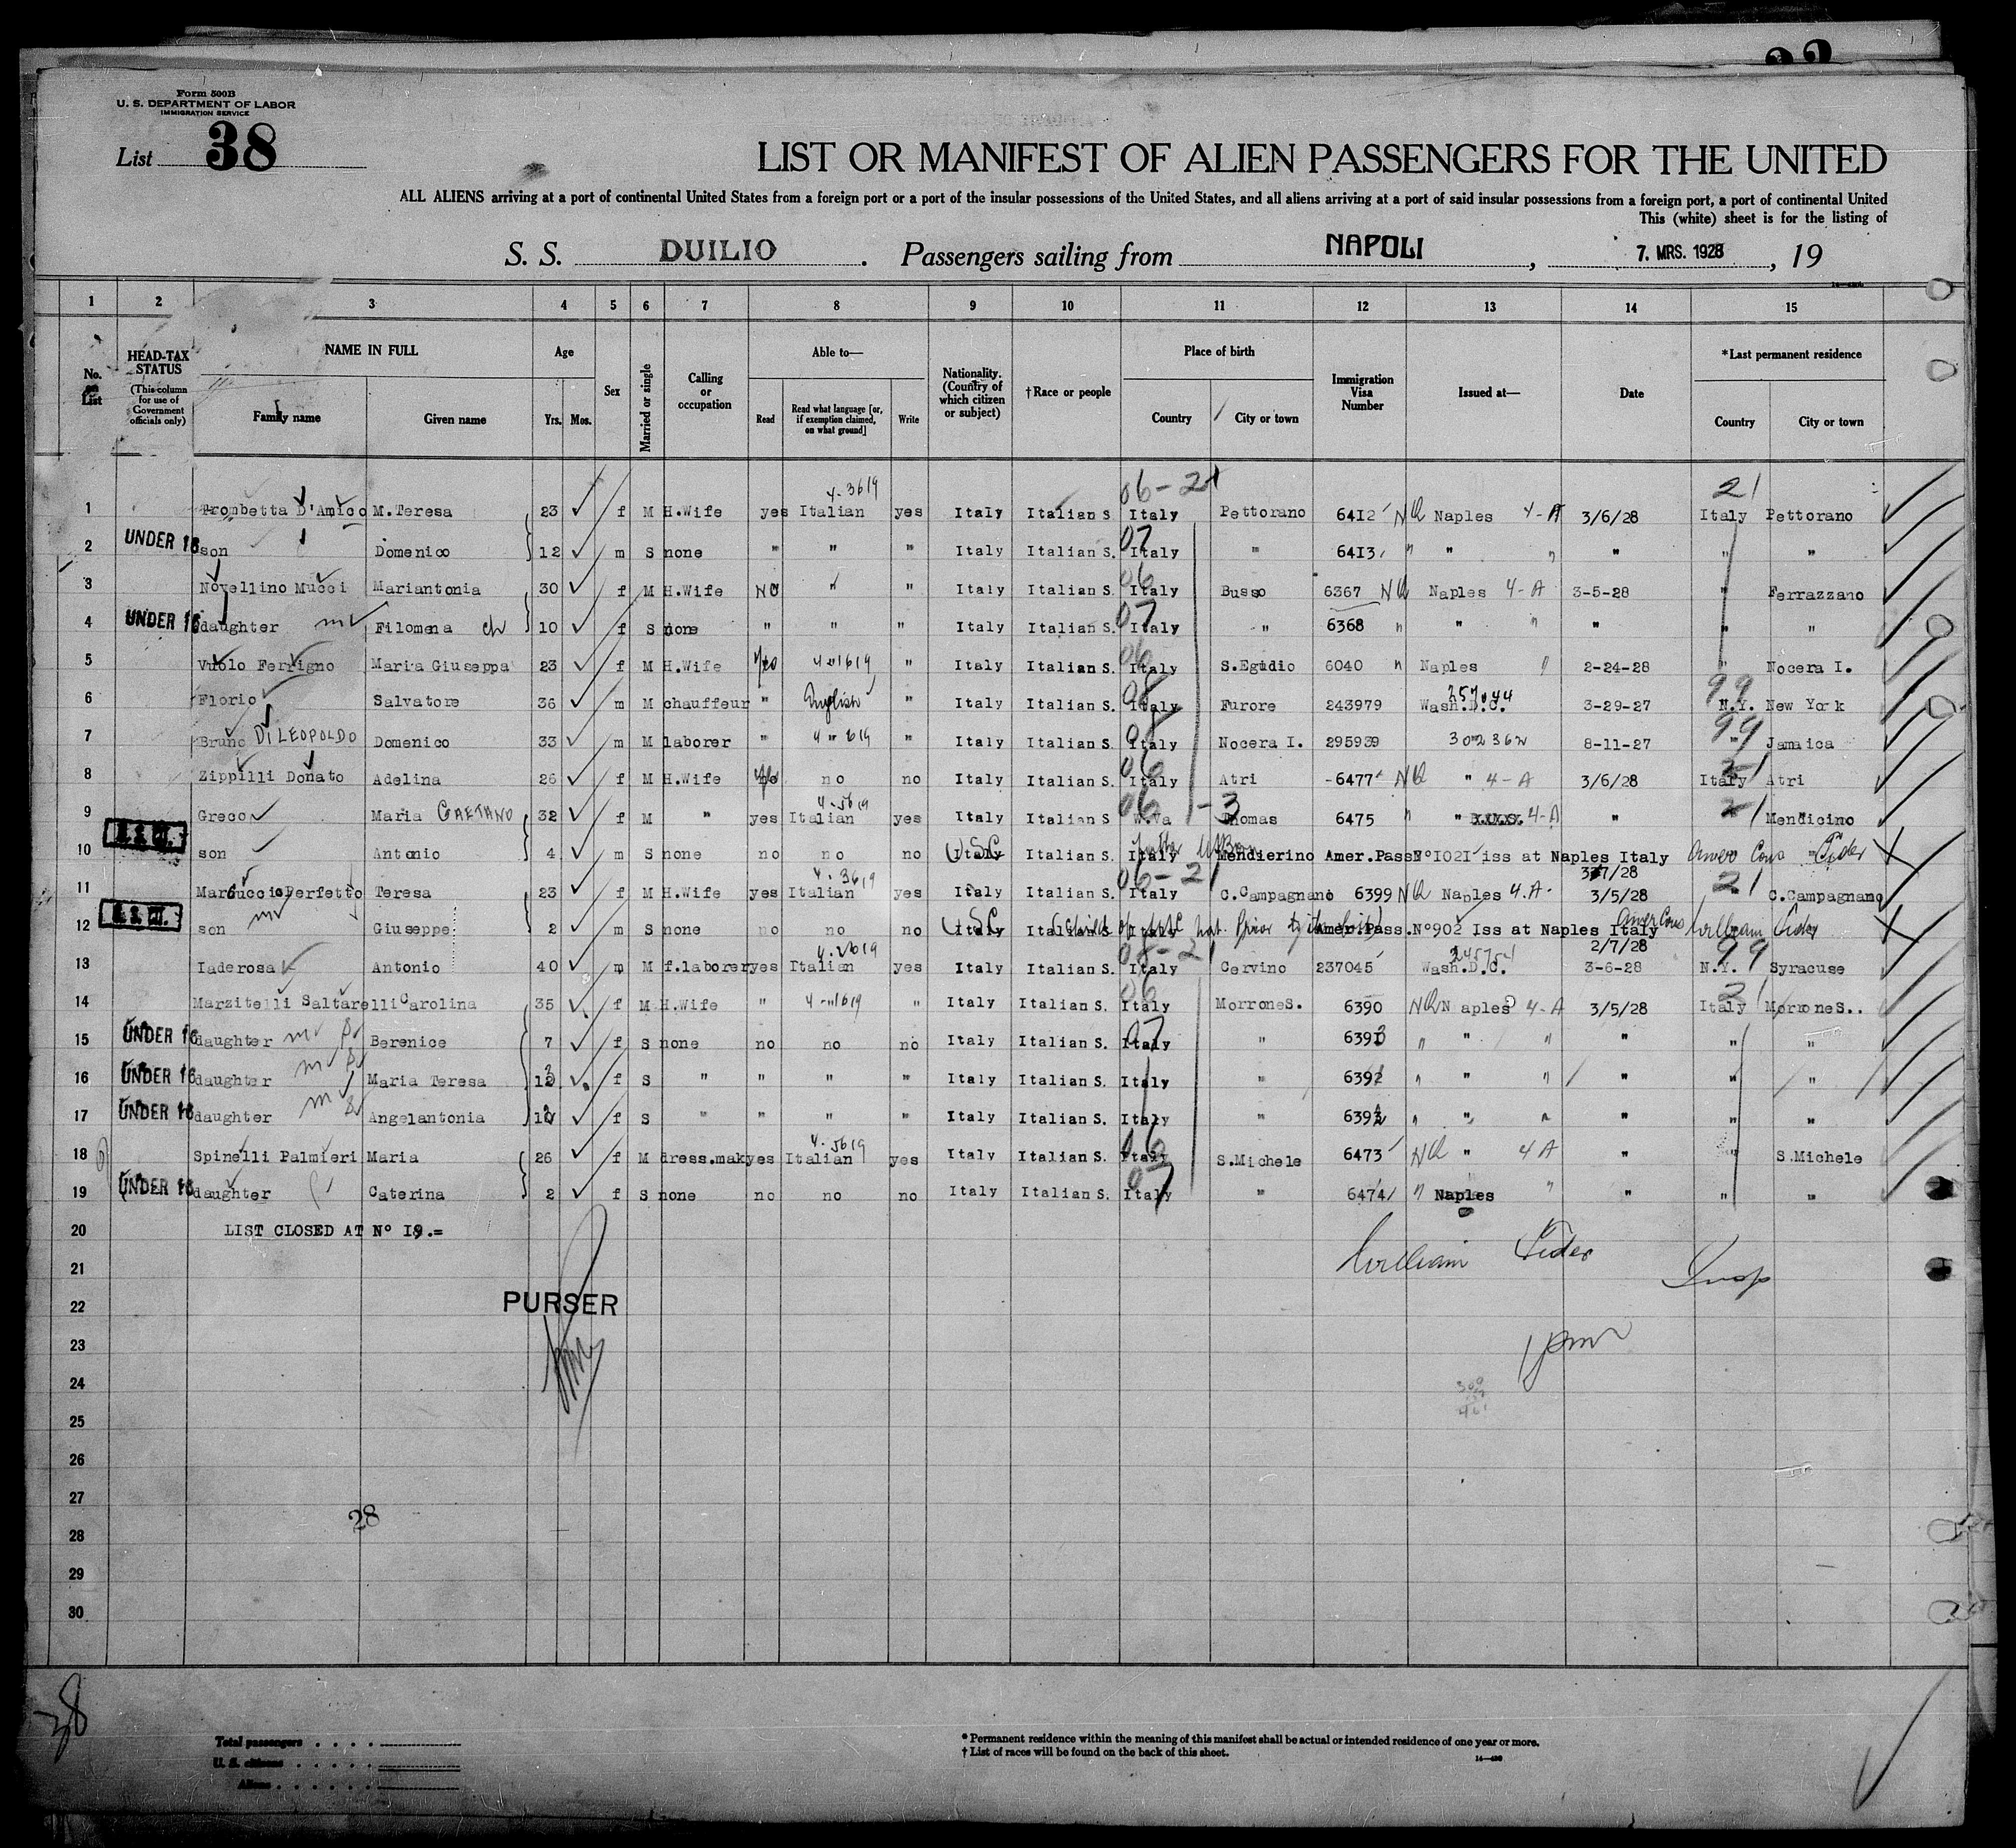 Form 500B
U. S. DEPARTMENT OF LABOR
IMMIGRATION SERVICE
List 38
LIST OR MANIFEST OF ALIEN PASSENGERS FOR THE UNITED
ALL ALIENS arriving at a port of continental United States from a foreign port or a port of the insular possessions of the United States, and all aliens arriving at a port of said insular possessions from a foreign port, a port of continental United
This (white) sheet is for the listing of
S. S. DUILIO . Passengers sailing from NAPOLI , 7. MRS. 1928 , 19
1 2 3 4 5 6 7 8 9 10 11 12 13 14 15
No. on List
HEAD-TAX STATUS (This column for use of Government officials only)
NAME IN FULL Family name Given name
Age Yrs. Mos.
Sex
Married or single
Calling or occupation
Able to— Read Read what language [or, if exemption claimed, on what ground] Write
Nationality. (Country of which citizen or subject)
† Race or people
Place of birth Country City or town
Immigration Visa Number
Issued at—
Date
*Last permanent residence Country City or town
4-3619 06-21 21
1 Trombetta D'Amico M.Teresa 23 f M H.Wife yes Italian yes Italy Italian S Italy Pettorano 6412 NQ Naples 4-A 3/6/28 Italy Pettorano
2 UNDER 16 son Domenico 12 m S none " " " Italy Italian S. 07 Italy " 6413 " " " " " "
3 Novellino Mucci Mariantonia 30 f M H.Wife No " " Italy Italian S. 06 Italy Busso 6367 NQ Naples 4-A 3-5-28 " Ferrazzano
4 UNDER 16 daughter Filomena ch 10 f S none " " " Italy Italian S. 07 Italy " 6368 " " " " " "
5 Vuolo Ferrigno Maria Giuseppa 23 f M H.Wife Yes 4-1619 " Italy Italian S. 06 Italy S.Egidio 6040 " Naples " 2-24-28 " Nocera I.
6 Florio Salvatore 36 m M chauffeur " English " Italy Italian S. Italy Furore 243979 Wash.D.C. 3-29-27 99 N.Y. New York
7 Bruno DI LEOPOLDO Domenico 33 m M laborer " " Italy Italian S. Italy Nocera I. 295939 302362 8-11-27 99 " Jamaica
8 Zippilli Donato Adelina 26 f M H.Wife no no Italy Italian S. 06 Italy Atri 6477 NQ " 4-A 3/6/28 Italy Atri
9 Greco Maria GAETANO 32 f M " yes 4-5619 Italian yes Italy Italian S 06 -3 W.Va Thomas 6475 " " 4-A " Mendicino
10 son Antonio 4 m S none no no no USC Italy Italian S. Italy Mendierino Amer.Pass N°1021 iss at Naples Italy Amer Cons Fider
3/7/28
11 Marcuccio Perfetto Teresa 23 f M H.Wife yes 4-3619 Italian yes Italy Italian S. 06-21 Italy C.Campagnano 6399 NQ Naples 4.A. 3/5/28 21 C.Campagnano
12 son Giuseppe 2 m S none no no no USC Italy Italian Italy Amer.Pass.N°902 Iss at Naples Italy Amer Cons William Fider
2/7/28
13 Iaderosa Antonio 40 m M f.laborer yes 4-2619 Italian yes Italy Italian S. Italy Cervino 237045 Wash.D.C. 3-6-28 99 N.Y. Syracuse
14 Marzitelli Saltarelli Carolina 35 f M H.Wife " 4-1619 " Italy Italian S. 06 Italy MorroneS. 6390 NQ Naples 4-A 3/5/28 21 Italy MorroneS..
15 UNDER 16 daughter Berenice 7 f S none no no no Italy Italian S. 07 Italy " 6393 " " " " " "
16 UNDER 16 daughter Maria Teresa 13 f S " " " " Italy Italian S. Italy " 6392 " " " " " "
17 UNDER 16 daughter Angelantonia f S " " " " Italy Italian S. Italy " 6392 " " " " " "
18 Spinelli Palmieri Maria 26 f M dress.mak yes 4-5619 Italian yes Italy Italian S. 06 Italy S.Michele 6473 NQ " 4 A " " S.Michele
19 UNDER 16 daughter Caterina 2 f S none no no no Italy Italian S. 07 Italy " 6474 " Naples " " " "
20 LIST CLOSED AT N° 19.=
William Fider
21 Insp
22 PURSER
23
24
25
26
27
28
28
29
30
38
Total passengers
U. S. citizens
Aliens
* Permanent residence within the meaning of this manifest shall be actual or intended residence of one year or more.
† List of races will be found on the back of this sheet.
14—430